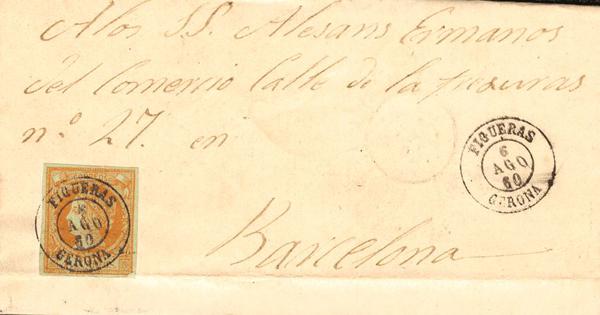 Alos SS. Alesans Ermanos
del Comercio Calle de la
nº 27. en
FIGUERAS
6
AGO
60
GERONA
FIGUERAS
6
AGO
60
GERONA
Barcelona